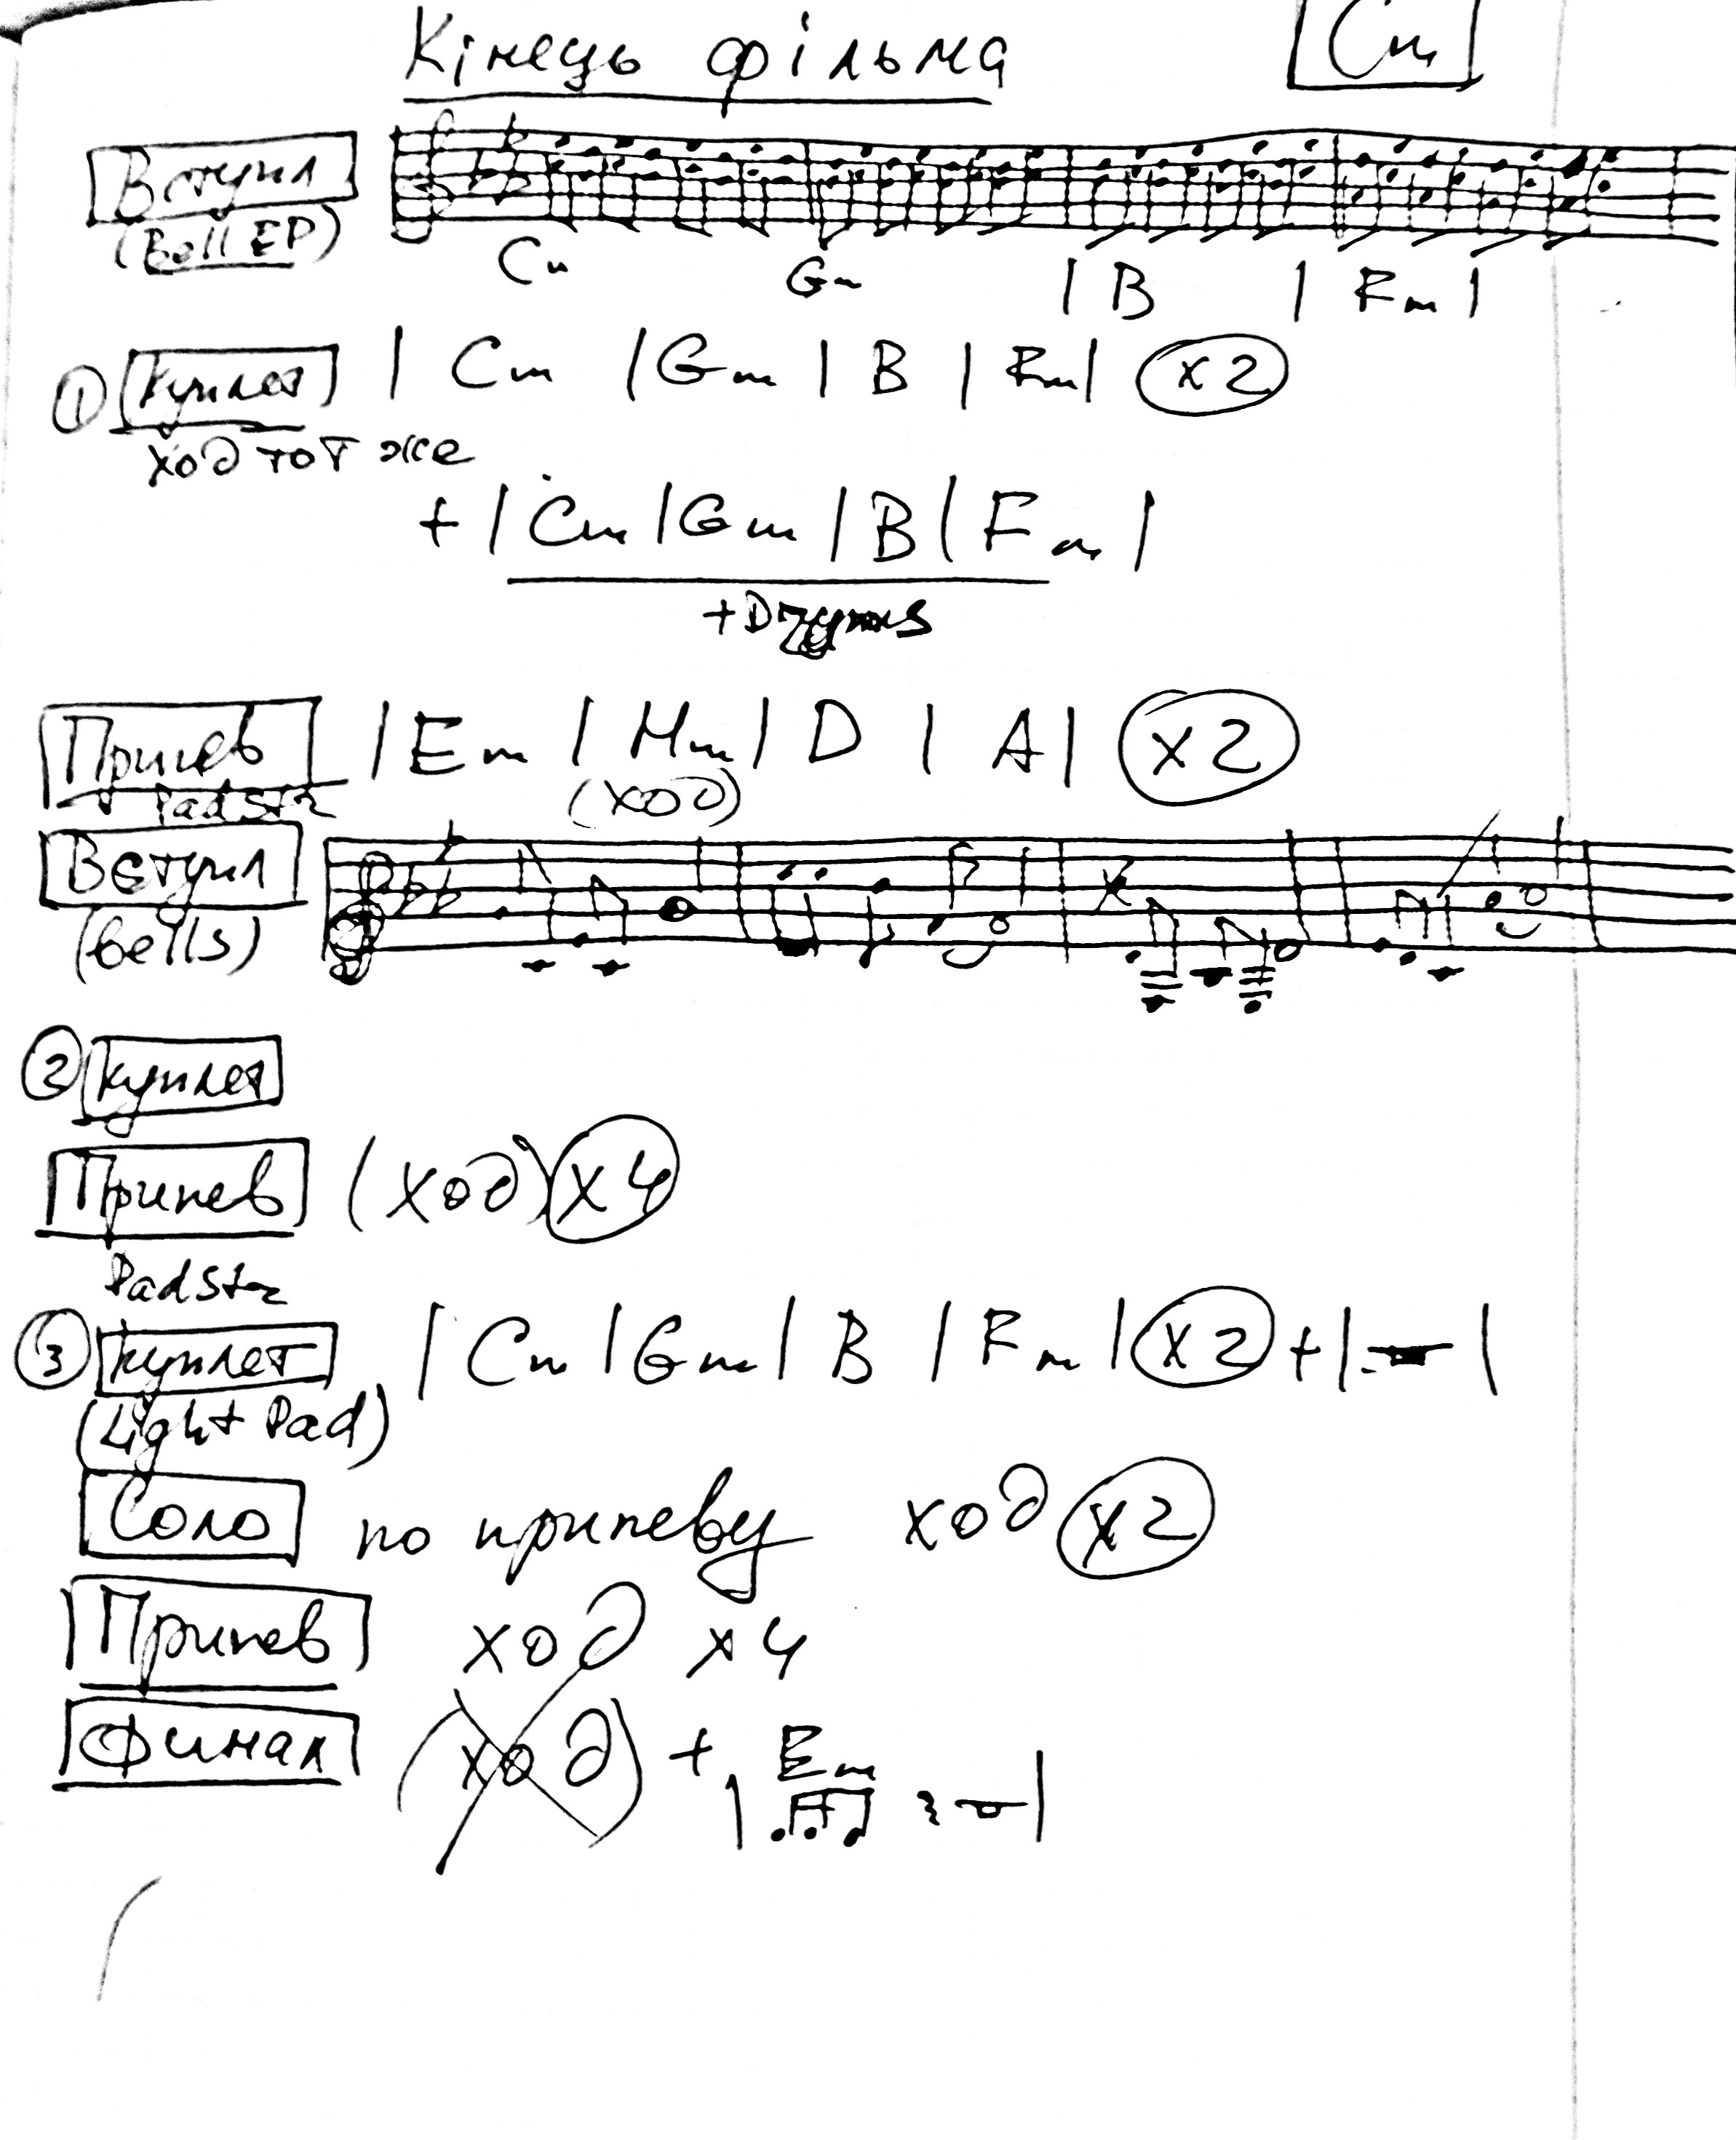 Кінець фільма Cm
Вступл
(Bell EP)
Cm Gm | B | Fm |
① Куплет | Cm | Gm | B | Fm | x2
ход тот же
+ | Cm | Gm | B | Fm |
+Drums
Припев | Em | Hm | D | A | x2
Padstr (ход)
Вступл
(bells)
② Куплет
Припев (ход) x4
Padstr
③ Куплет | Cm | Gm | B | Fm | x2 + | - |
(Light Pad)
Соло по припеву ход x2
Припев ход x4
Финал (ход) + | Em |